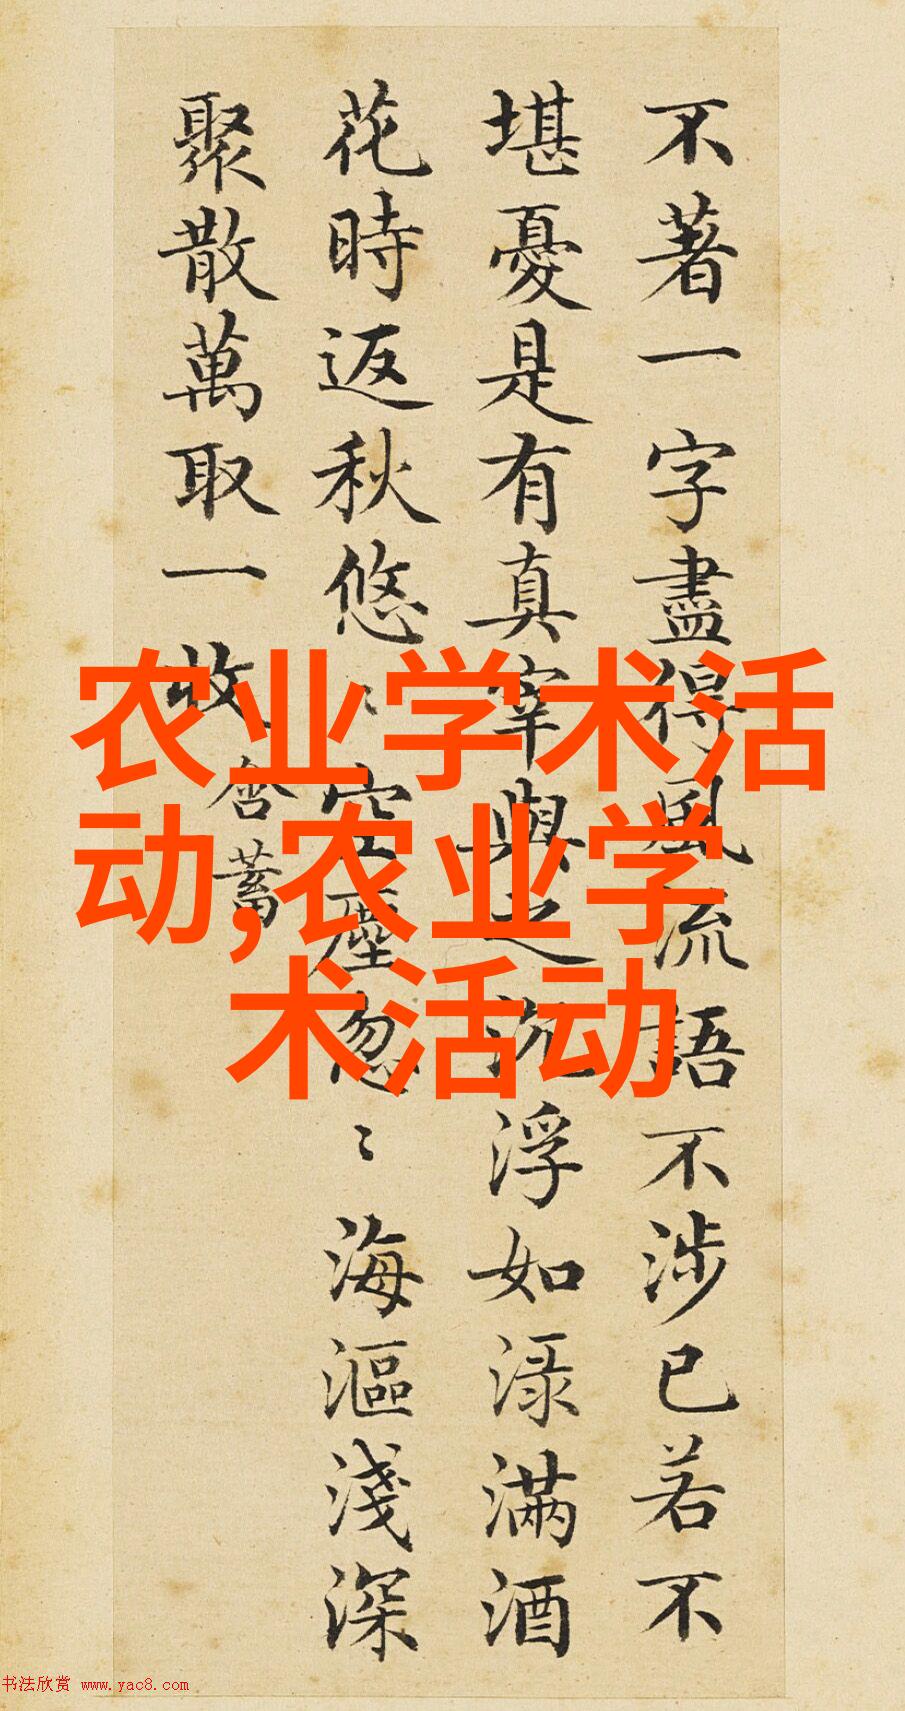 不著一字盡得風流語不涉已若不
堪憂是有真宰與之沉浮如渌滿酒
花時返秋悠〻空塵忽〻海漚淺深
聚散萬取一收 含蓄
农业学术活
动,农业学
术活动
书法欣赏 www.yac8.com